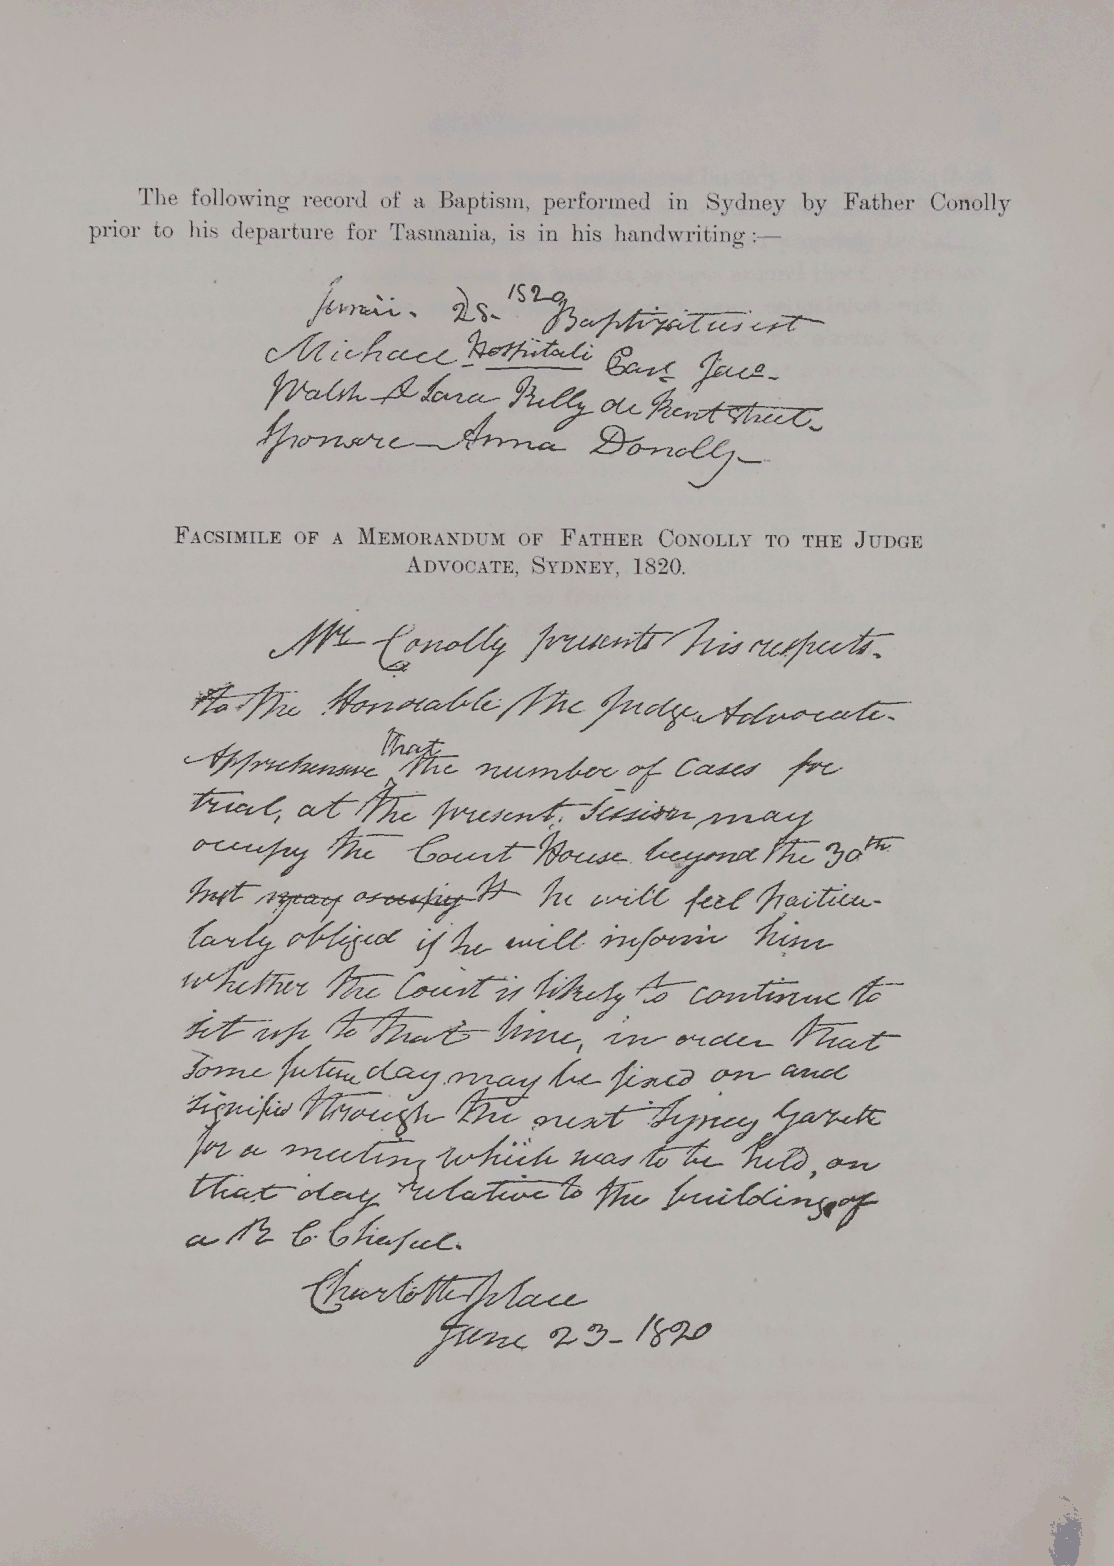 The following record of a Baptism, performed in Sydney by Father Conolly
prior to his departure for Tasmania, is in his handwriting :—
Junii. 28. 1820 Baptizatus est
Michael Hospitali
Walsh & Sara Kelly de Kent Street.
Sponsore — Anna Donolly —
FACSIMILE OF A MEMORANDUM OF FATHER CONOLLY TO THE JUDGE
ADVOCATE, SYDNEY, 1820.
Mr Conolly presents his respects.
to the Honorable the Judge Advocate.
Apprehensive that the number of cases for
trial, at the present Session may
occupy the Court House beyond the 30th
Inst may occupy it he will feel particu-
larly obliged if he will inform him
whether the Court is likely to continue to
sit up to that time, in order that
some future day may be fixed on and
signified through the next Sydney Gazette
for a meeting which was to be held, on
that day relative to the building of
a R C Chapel.
Charlotte place
June 23 - 1820